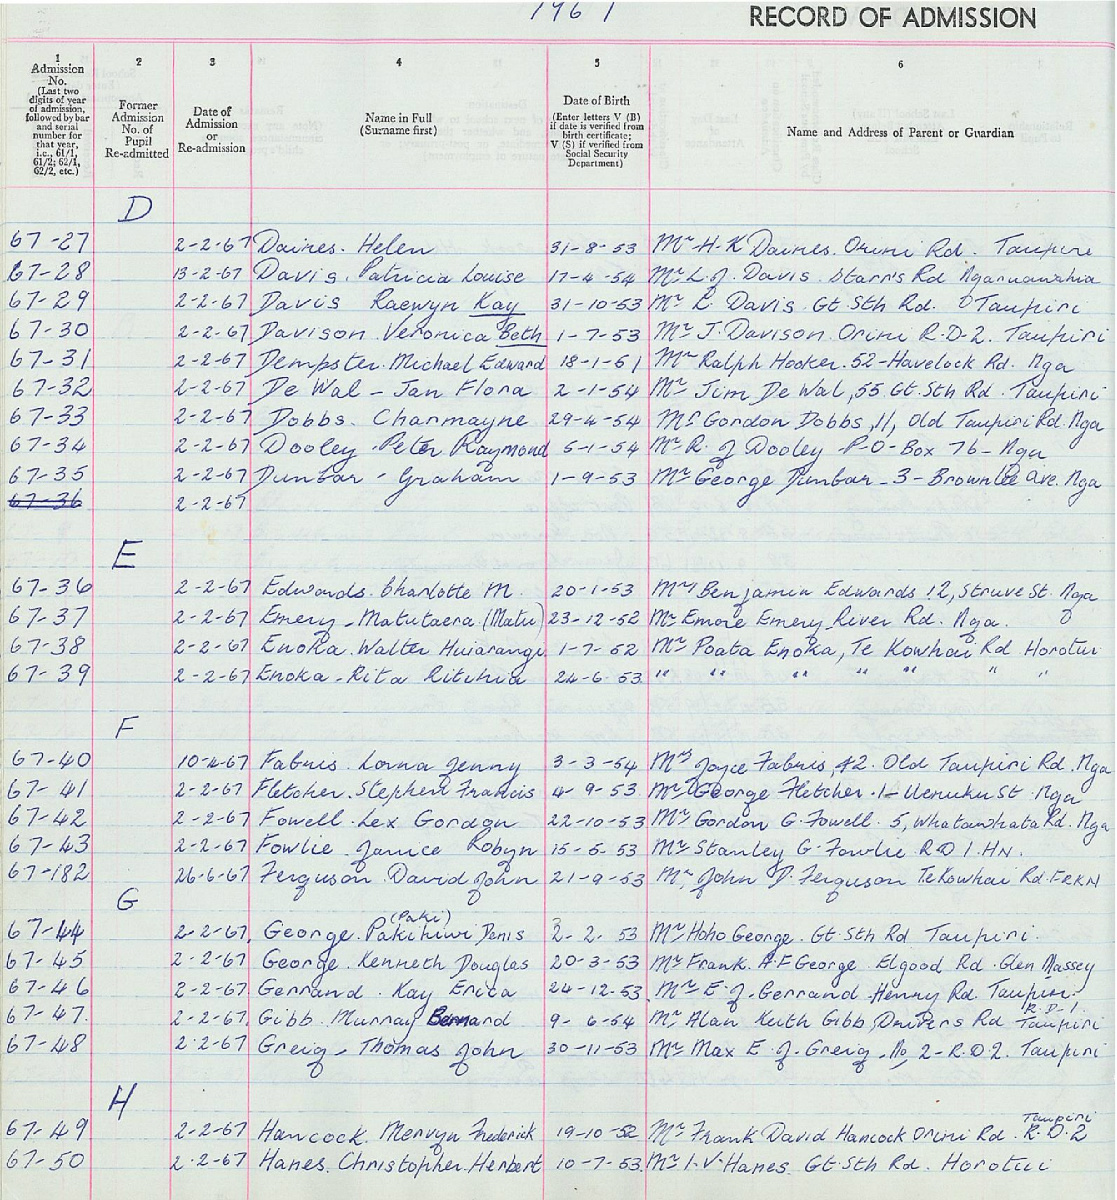 1967
RECORD OF ADMISSION
1 2 3 4 5 6
Admission No. (Last two digits of year of admission, followed by bar and serial number for that year, i.e., 61/1, 61/2; 62/1, 62/2, etc.)
Former Admission No. of Pupil Re-admitted
Date of Admission or Re-admission
Name in Full (Surname first)
Date of Birth (Enter letters V (B) if date is verified from birth certificate; V (S) if verified from Social Security Department)
Name and Address of Parent or Guardian
D
67-27 2-2-67 Daines. Helen 31-8-53 Mr H.K Daines. Orini Rd. Taupiri
67-28 13-2-67 Davis. Patricia Louise 17-4-54 Mr L.J. Davis. Starr's Rd Ngaruawahia
67-29 2-2-67 Davis Raewyn Kay 31-10-53 Mr L. Davis. Gt Sth Rd. Taupiri
67-30 2-2-67 Davison. Veronica Beth 1-7-53 Mr J. Davison. Orini R.D-2. Taupiri
67-31 2-2-67 Dempster. Michael Edward 18-1-51 Mr Ralph Hooker. 52-Havelock Rd. Nga
67-32 2-2-67 De Wal - Jan Flora 2-1-54 Mr Jim De Wal, 55 Gt. Sth Rd. Taupiri
67-33 2-2-67 Dobbs. Charmayne 29-4-54 Mr Gordon Dobbs, 11, Old Taupiri Rd. Nga
67-34 2-2-67 Dooley - Peter Raymond 5-1-54 Mr R J Dooley P-O-Box 76- Nga
67-35 2-2-67 Dunbar - Graham 1-9-53 Mr George Dunbar - 3-Brownlee Ave. Nga
67-36 2-2-67
E
67-36 2-2-67 Edwards. Charlotte M. 20-1-53 Mr Benjamin Edwards 12, Struve St. Nga
67-37 2-2-67 Emery - Matutaera (Matu) 23-12-52 Mr Emore Emery River Rd. Nga.
67-38 2-2-67 Enoka. Walter Huiarangi 1-7-52 Mr Poata Enoka, Te Kowhai Rd Horotiu
67-39 2-2-67 Enoka - Rita Ritchia 24-6-53 " " " " " " "
F
67-40 10-4-67 Fabris. Lorna Jenny 3-3-54 Mrs Joyce Fabris, 42. Old Taupiri Rd. Nga
67-41 2-2-67 Fletcher. Stephen Francis 4-9-53 Mr George Fletcher. 1- Uenuku St Nga
67-42 2-2-67 Fowell. Lex Gordon 22-10-53 Mr Gordon G. Fowell. 5, Whatawhata Rd. Nga
67-43 2-2-67 Fowlie Janice Robyn 15-5-53 Mr Stanley G. Fowlie R.D 1. HN.
67-182 26-6-67 Ferguson David John 21-9-53 Mr John D. Ferguson Te Kowhai Rd. FRKN
G
67-44 2-2-67 George. Pakihiwi Denis (Paki) 2-2-53 Mr Hoho George. Gt Sth Rd Taupiri.
67-45 2-2-67 George. Kenneth Douglas 20-3-53 Mr Frank. A.F George Elgood Rd. Glen Massey
67-46 2-2-67 Gerrand. Kay Erica 24-12-53 Mr E.J. Gerrand Henry Rd. Taupiri.
67-47. 2-2-67 Gibb. Murray Bernard 9-6-54 Mr Alan Keith Gibb, Drivers Rd R.D-1. Taupiri
67-48 2-2-67 Greig - Thomas John 30-11-53 Mr Max E. J. Greig, No 2-R.D2. Taupiri
H
67-49 2-2-67 Hancock. Mervyn Frederick 19-10-52 Mr Frank David Hancock Orini Rd. Taupiri R.D.2
67-50 2-2-67 Hanes. Christopher. Herbert 10-7-53 Mr I.V. Hanes. Gt. Sth Rd. Horotiu